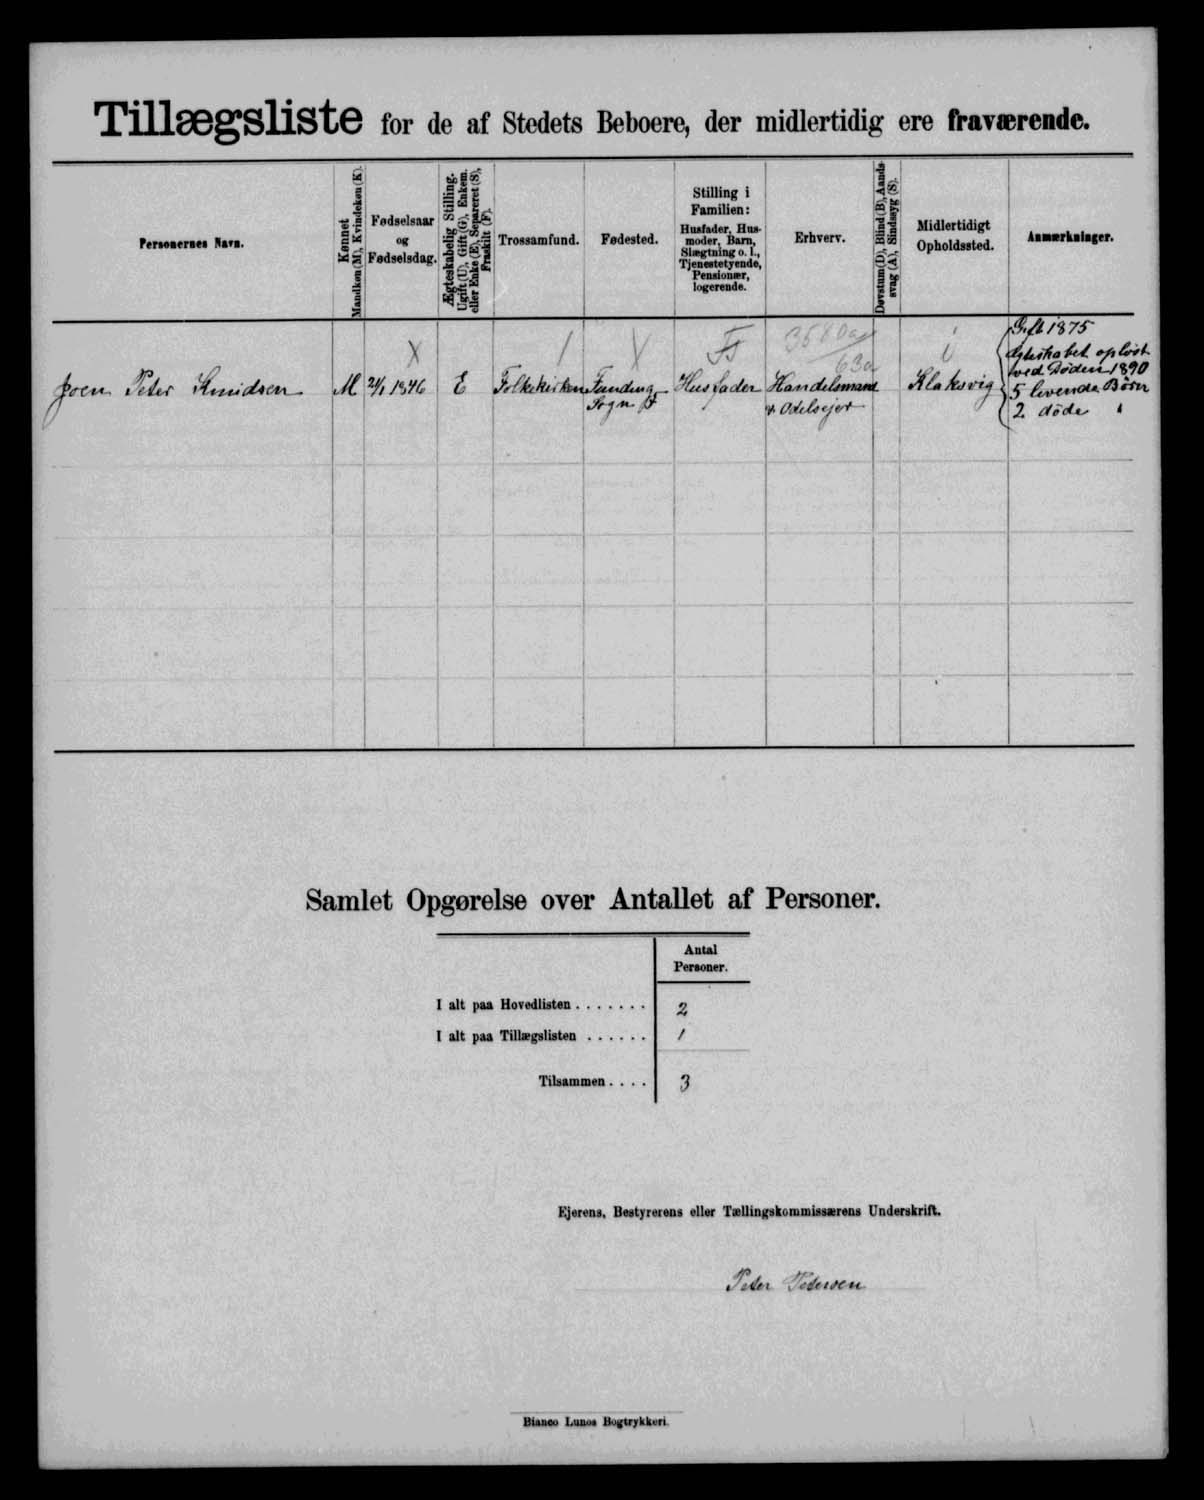 Tillægsliste for de af Stedets Beboere, der midlertidig ere fraværende.
Personernes Navn.
Kønnet
Mandkøn (M), Kvindekøn (K).
Fødselsaar
og
Fødselsdag.
Ægteskabelig Stilling.
Ugift (U), Gift (G), Enkem.
eller Enke (E), Separeret (S),
Fraskilt (F).
Trossamfund.
Fødested.
Stilling i
Familien:
Husfader, Hus-
moder, Barn,
Slægtning o. l.,
Tjenestetyende,
Pensionær,
logerende.
Erhverv.
Døvstum (D), Blind (B), Aands-
svag (A), Sindssyg (S).
Midlertidigt
Opholdssted.
Anmærkninger.
Joen Peter Knudsen
M
21/1 1846
E
Folkekirken
Funding
Sogn
Husfader
Handelsmand
& Odelsejer
Klaksvig
Gift 1875
Ægteskabet opløst
ved Døden 1890
5 levende Børn
2 døde "
Samlet Opgørelse over Antallet af Personer.
Antal
Personer.
I alt paa Hovedlisten . . . . . . . 2
I alt paa Tillægslisten . . . . . . 1
Tilsammen . . . . 3
Ejerens, Bestyrerens eller Tællingskommissærens Underskrift.
Peter Pedersen
Bianco Lunos Bogtrykkeri.